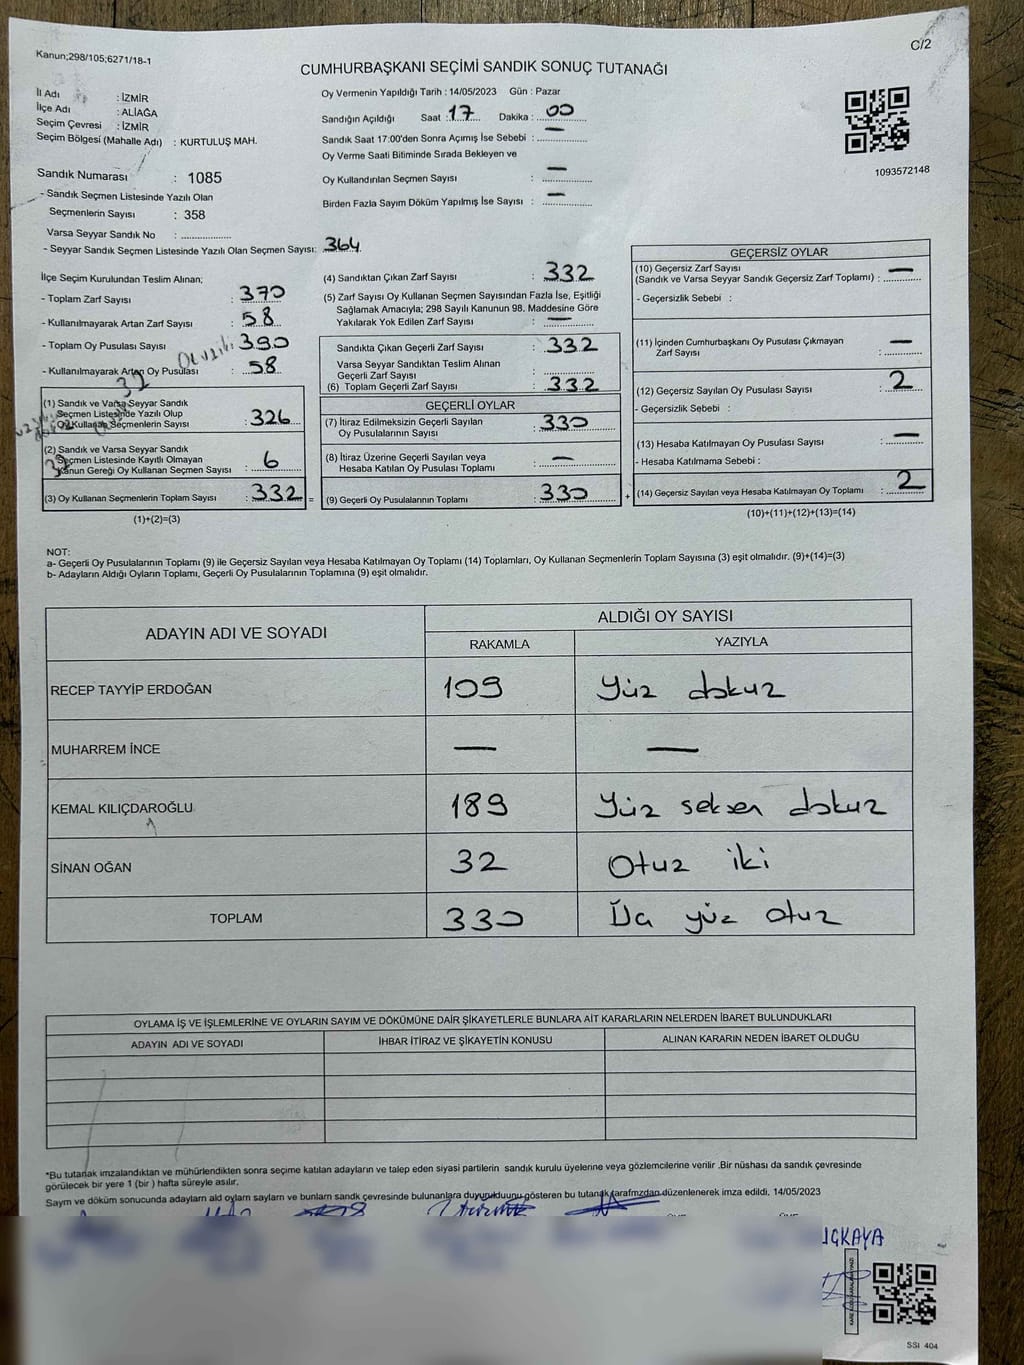 Kanun;298/105;6271/18-1
C/2
CUMHURBAŞKANI SEÇİMİ SANDIK SONUÇ TUTANAĞI
İl Adı : İZMİR
İlçe Adı : ALİAĞA
Seçim Çevresi : İZMİR
Seçim Bölgesi (Mahalle Adı) : KURTULUŞ MAH.
Sandık Numarası : 1085
- Sandık Seçmen Listesinde Yazılı Olan
Seçmenlerin Sayısı : 358
Varsa Seyyar Sandık No :
- Seyyar Sandık Seçmen Listesinde Yazılı Olan Seçmen Sayısı: 364
Oy Vermenin Yapıldığı Tarih : 14/05/2023 Gün : Pazar
Sandığın Açıldığı Saat : 17 Dakika : 00
Sandık Saat 17:00'den Sonra Açımış İse Sebebi : —
Oy Verme Saati Bitiminde Sırada Bekleyen ve
Oy Kullandırılan Seçmen Sayısı : —
Birden Fazla Sayım Döküm Yapılmış İse Sayısı : —
1093572148
İlçe Seçim Kurulundan Teslim Alınan;
- Toplam Zarf Sayısı : 370
- Kullanılmayarak Artan Zarf Sayısı : 58
- Toplam Oy Pusulası Sayısı : 390
- Kullanılmayarak Artan Oy Pusulası : 58
(1) Sandık ve Varsa Seyyar Sandık
Seçmen Listesinde Yazılı Olup
Oy Kullanan Seçmenlerin Sayısı : 326
(2) Sandık ve Varsa Seyyar Sandık
Seçmen Listesinde Kayıtlı Olmayan
Kanun Gereği Oy Kullanan Seçmen Sayısı : 6
(3) Oy Kullanan Seçmenlerin Toplam Sayısı : 332 =
(1)+(2)=(3)
(4) Sandıktan Çıkan Zarf Sayısı : 332
(5) Zarf Sayısı Oy Kullanan Seçmen Sayısından Fazla İse, Eşitliği
Sağlamak Amacıyla; 298 Sayılı Kanunun 98. Maddesine Göre
Yakılarak Yok Edilen Zarf Sayısı : —
Sandıkta Çıkan Geçerli Zarf Sayısı : 332
Varsa Seyyar Sandıktan Teslim Alınan
Geçerli Zarf Sayısı :
(6) Toplam Geçerli Zarf Sayısı : 332
GEÇERLİ OYLAR
(7) İtiraz Edilmeksizin Geçerli Sayılan
Oy Pusulalarının Sayısı : 330
(8) İtiraz Üzerine Geçerli Sayılan veya
Hesaba Katılan Oy Pusulası Toplamı : —
(9) Geçerli Oy Pusulalarının Toplamı : 330 +
GEÇERSİZ OYLAR
(10) Geçersiz Zarf Sayısı
(Sandık ve Varsa Seyyar Sandık Geçersiz Zarf Toplamı) : —
- Geçersizlik Sebebi :
(11) İçinden Cumhurbaşkanı Oy Pusulası Çıkmayan
Zarf Sayısı : —
(12) Geçersiz Sayılan Oy Pusulası Sayısı : 2
- Geçersizlik Sebebi :
(13) Hesaba Katılmayan Oy Pusulası Sayısı : —
- Hesaba Katılmama Sebebi :
(14) Geçersiz Sayılan veya Hesaba Katılmayan Oy Toplamı : 2
(10)+(11)+(12)+(13)=(14)
NOT:
a- Geçerli Oy Pusulalarının Toplamı (9) ile Geçersiz Sayılan veya Hesaba Katılmayan Oy Toplamı (14) Toplamları, Oy Kullanan Seçmenlerin Toplam Sayısına (3) eşit olmalıdır. (9)+(14)=(3)
b- Adayların Aldığı Oyların Toplamı, Geçerli Oy Pusulalarının Toplamına (9) eşit olmalıdır.
ADAYIN ADI VE SOYADI
ALDIĞI OY SAYISI
RAKAMLA YAZIYLA
RECEP TAYYİP ERDOĞAN 109 Yüz dokuz
MUHARREM İNCE — —
KEMAL KILIÇDAROĞLU 189 Yüz seksen dokuz
SİNAN OĞAN 32 Otuz iki
TOPLAM 330 Üç yüz otuz
OYLAMA İŞ VE İŞLEMLERİNE VE OYLARIN SAYIM VE DÖKÜMÜNE DAİR ŞİKAYETLERLE BUNLARA AİT KARARLARIN NELERDEN İBARET BULUNDUKLARI
ADAYIN ADI VE SOYADI İHBAR İTİRAZ VE ŞİKAYETİN KONUSU ALINAN KARARIN NEDEN İBARET OLDUĞU
*Bu tutanak imzalandıktan ve mühürlendikten sonra seçime katılan adayların ve talep eden siyasi partilerin sandık kurulu üyelerine veya gözlemcilerine verilir .Bir nüshası da sandık çevresinde
görülecek bir yere 1 (bir ) hafta süreyle asılır.
Sayım ve döküm sonucunda adayların ald oyların sayıların ve bunların sandk çevresinde bulunanlara duyurulduunu gösteren bu tutanak tarafmzdan düzenlenerek imza edildi. 14/05/2023
SSI 404